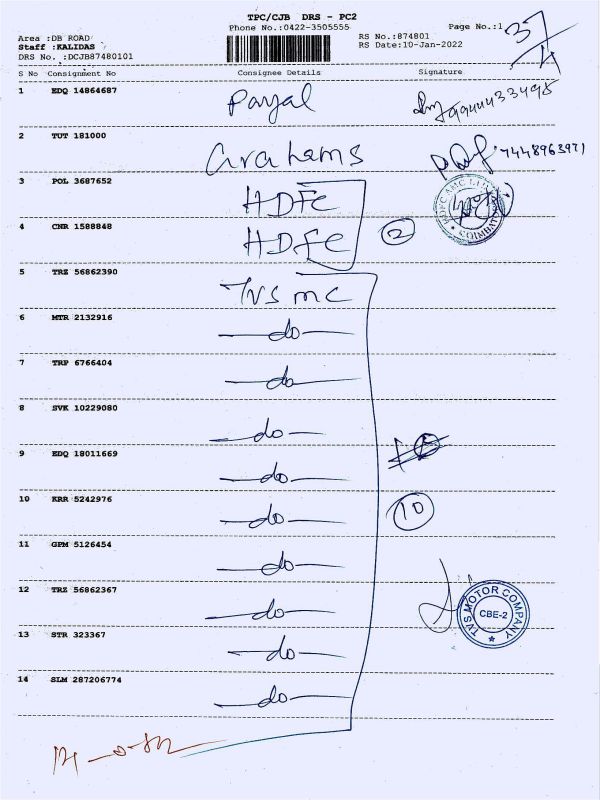 TPC/CJB DRS - PC2
Phone No.:0422-3505555
Page No.:1
37
Area :DB ROAD
RS No.:874801
Staff :KALIDAS
RS Date:10-Jan-2022
DRS No. :DCJB87480101
S No Consignment No Consignee Details Signature
1 EDQ 14864687 Payal 9944433498
2 TUT 181000 Grahams 7448963971
3 POL 3687652 HDFC
HDFC AMC LTD COIMBATORE
4 CNR 1588848 HDFC 2
5 TRZ 56862390 TVS MC
6 MTR 2132916 -do-
7 TRP 6766404 -do-
8 SVK 10229080 -do-
9 EDQ 18011669 -do-
10 KRR 5242976 -do- 10
11 GPM 5126454 -do-
12 TRZ 56862367 -do-
TVS MOTOR COMPANY
CBE-2
13 STR 323367 -do-
14 SLM 287206774 -do-